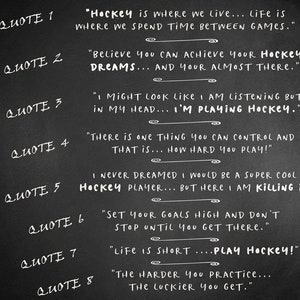 QUOTE 1
"HOCKEY IS WHERE WE LIVE... LIFE IS
WHERE WE SPEND TIME BETWEEN GAMES."
QUOTE 2
"BELIEVE YOU CAN ACHIEVE YOUR HOCKEY
DREAMS... AND YOUR ALMOST THERE."
QUOTE 3
"I MIGHT LOOK LIKE I AM LISTENING BUT
IN MY HEAD... I'M PLAYING HOCKEY."
QUOTE 4
"THERE IS ONE THING YOU CAN CONTROL AND
THAT IS... HOW HARD YOU PLAY!"
QUOTE 5
I NEVER DREAMED I WOULD BE A SUPER COOL
HOCKEY PLAYER...BUT HERE I AM KILLING
QUOTE 6
"SET YOUR GOALS HIGH AND DON'T
STOP UNTIL YOU GET THERE."
QUOTE 7
"LIFE IS SHORT ....PLAY HOCKEY!"
QUOTE 8
"THE HARDER YOU PRACTICE...
THE LUCKIER YOU GET."